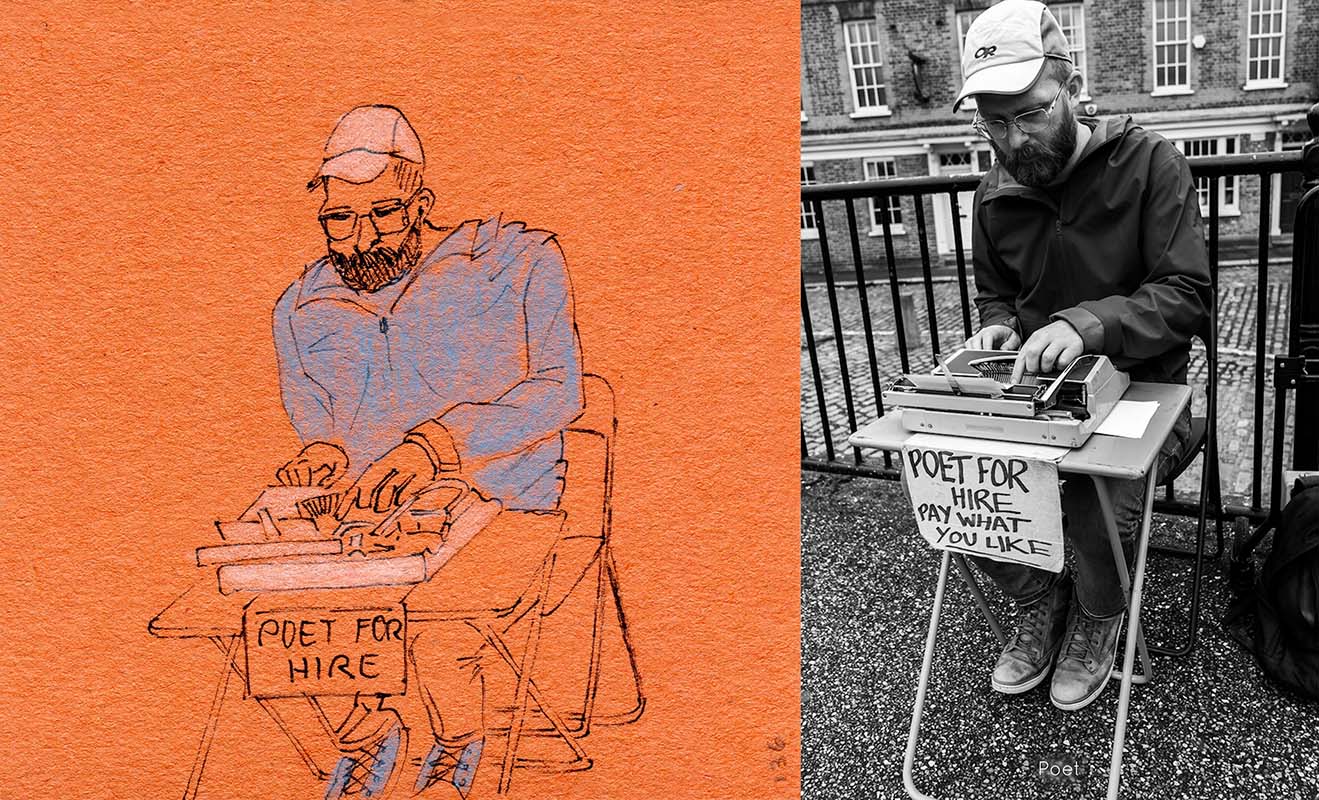 POET FOR
HIRE
136
OR
POET FOR
HIRE
PAY WHAT
YOU LIKE
Poet